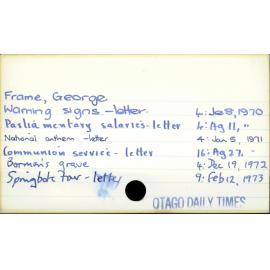 Frame, George
Warning signs - letter 4: Je 8, 1970
Parliamentary salaries - letter 4: Ag 11, "
National anthem - letter 4: Jan 5, 1971
Communion service - letter 16: Ag 27, "
Borman's grave 4: Dec 19, 1972
Springbok Tour - letter 9: Feb 12, 1973
OTAGO DAILY TIMES